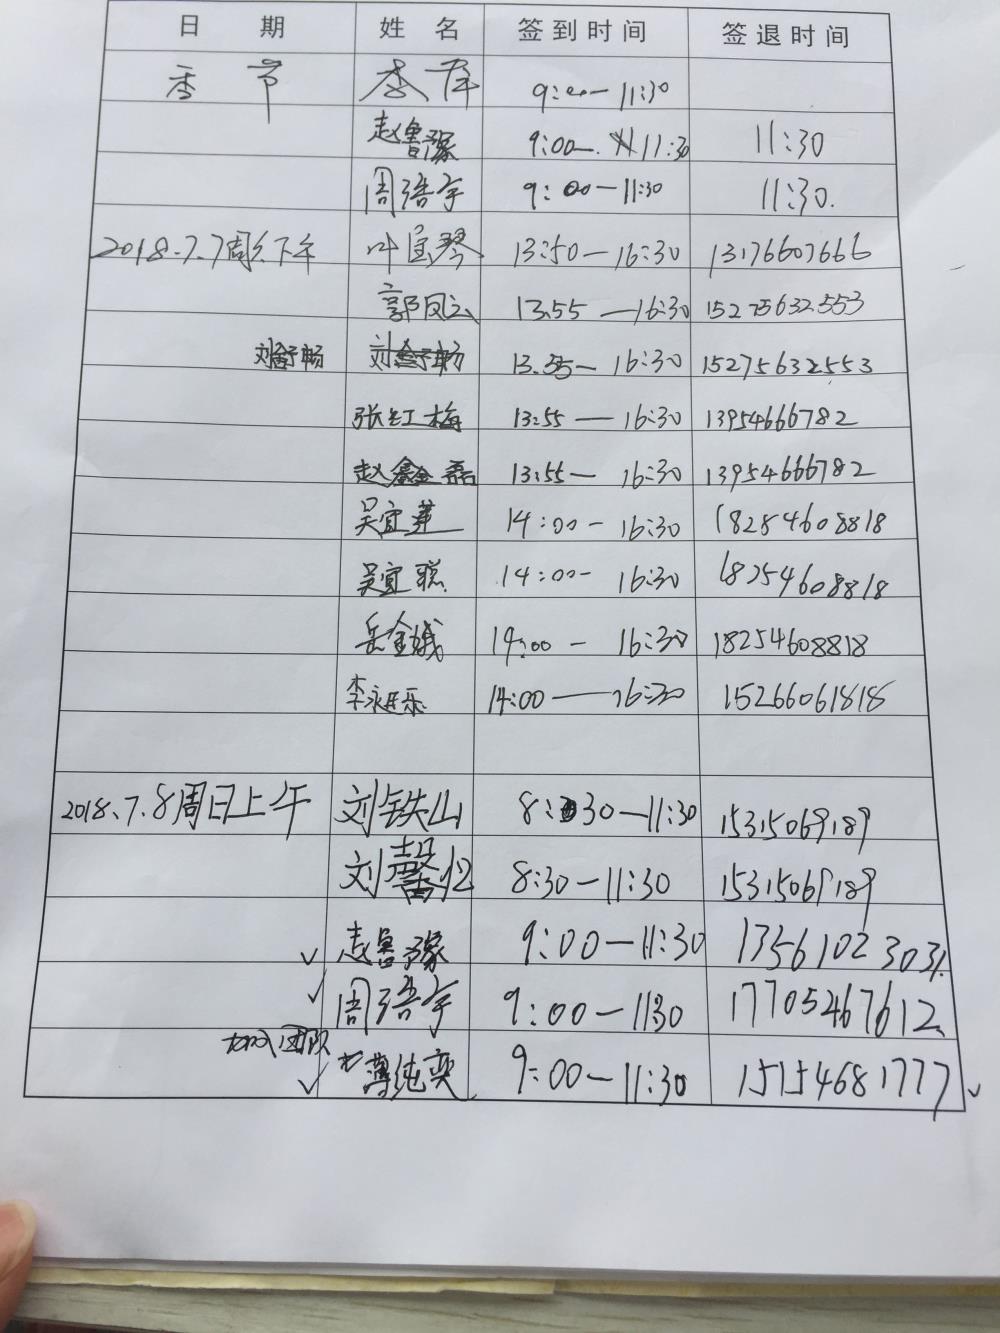 日 期 姓 名 签到时间 签退时间
李 9:00—11:30
赵鲁豫 9:00—11:30 11:30
周浩宇 9:00—11:30 11:30.
2018.7.7周六下午 叶宝琴 13:50—16:30 13176607666
郭凤云 13.55—16:30 15275632553
刘舒畅 刘舒畅 13.55— 16:30 15275632553
张红梅 13:55—16:30 13954666782
赵鑫磊 13:55— 16:30 13954666782
吴宜 14:00- 16:30 18254608818
吴宜聪 14:00- 16:30 18254608818
岳金娥 14:00 - 16:30 18254608818
李永乐 14:00—16:30 15266061818
2018.7.8周日上午 刘铁山 8:30—11:30 15315069189
刘馨忆 8:30—11:30 15315069189
✓ 赵鲁豫 9:00—11:30 1356102303
✓ 周浩宇 9:00—1130 17705467612
加入团队 ✓ 薄纯奕 9:00—11:30 15154681777 ✓